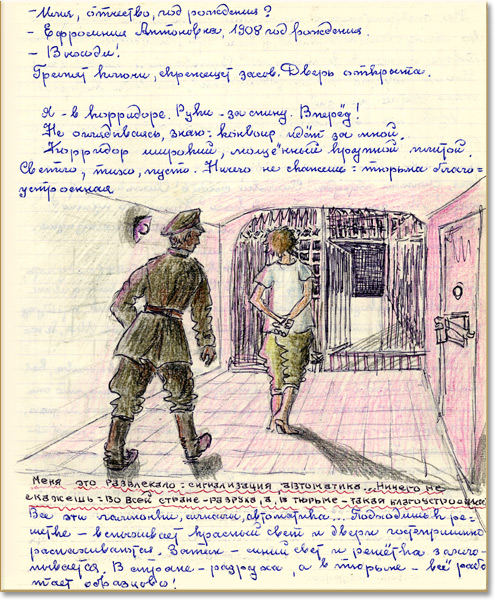 - Имя, отчество, год рождения?
- Ефросиния Антоновна, 1908 год рождения.
- Выходи!
Гремят ключи, скрежещет засов. Дверь открыта.
Я - в корридоре. Руки - за спину. Вперёд!
Не оглядываясь, знаю: конвоир идёт за мной.
Корридор широкий, мощёный крупной плитой.
Светло, тихо, пусто. Ничего не скажешь: тюрьма благо=
устроенная
Меня это развлекало: сигнализация автоматика... Ничего не
скажешь: во всей стране - разруха, а, в тюрьме - такая благоустроенность
Все эти лампочки, автоматика... Подходишь к ре-
шётке - вспыхивает красный свет и двери гостеприимно
распахиваются. Затем - синий свет и решётка захло-
пывается. В стране - разруха, а в тюрьме - всё рабо
тает образцово!